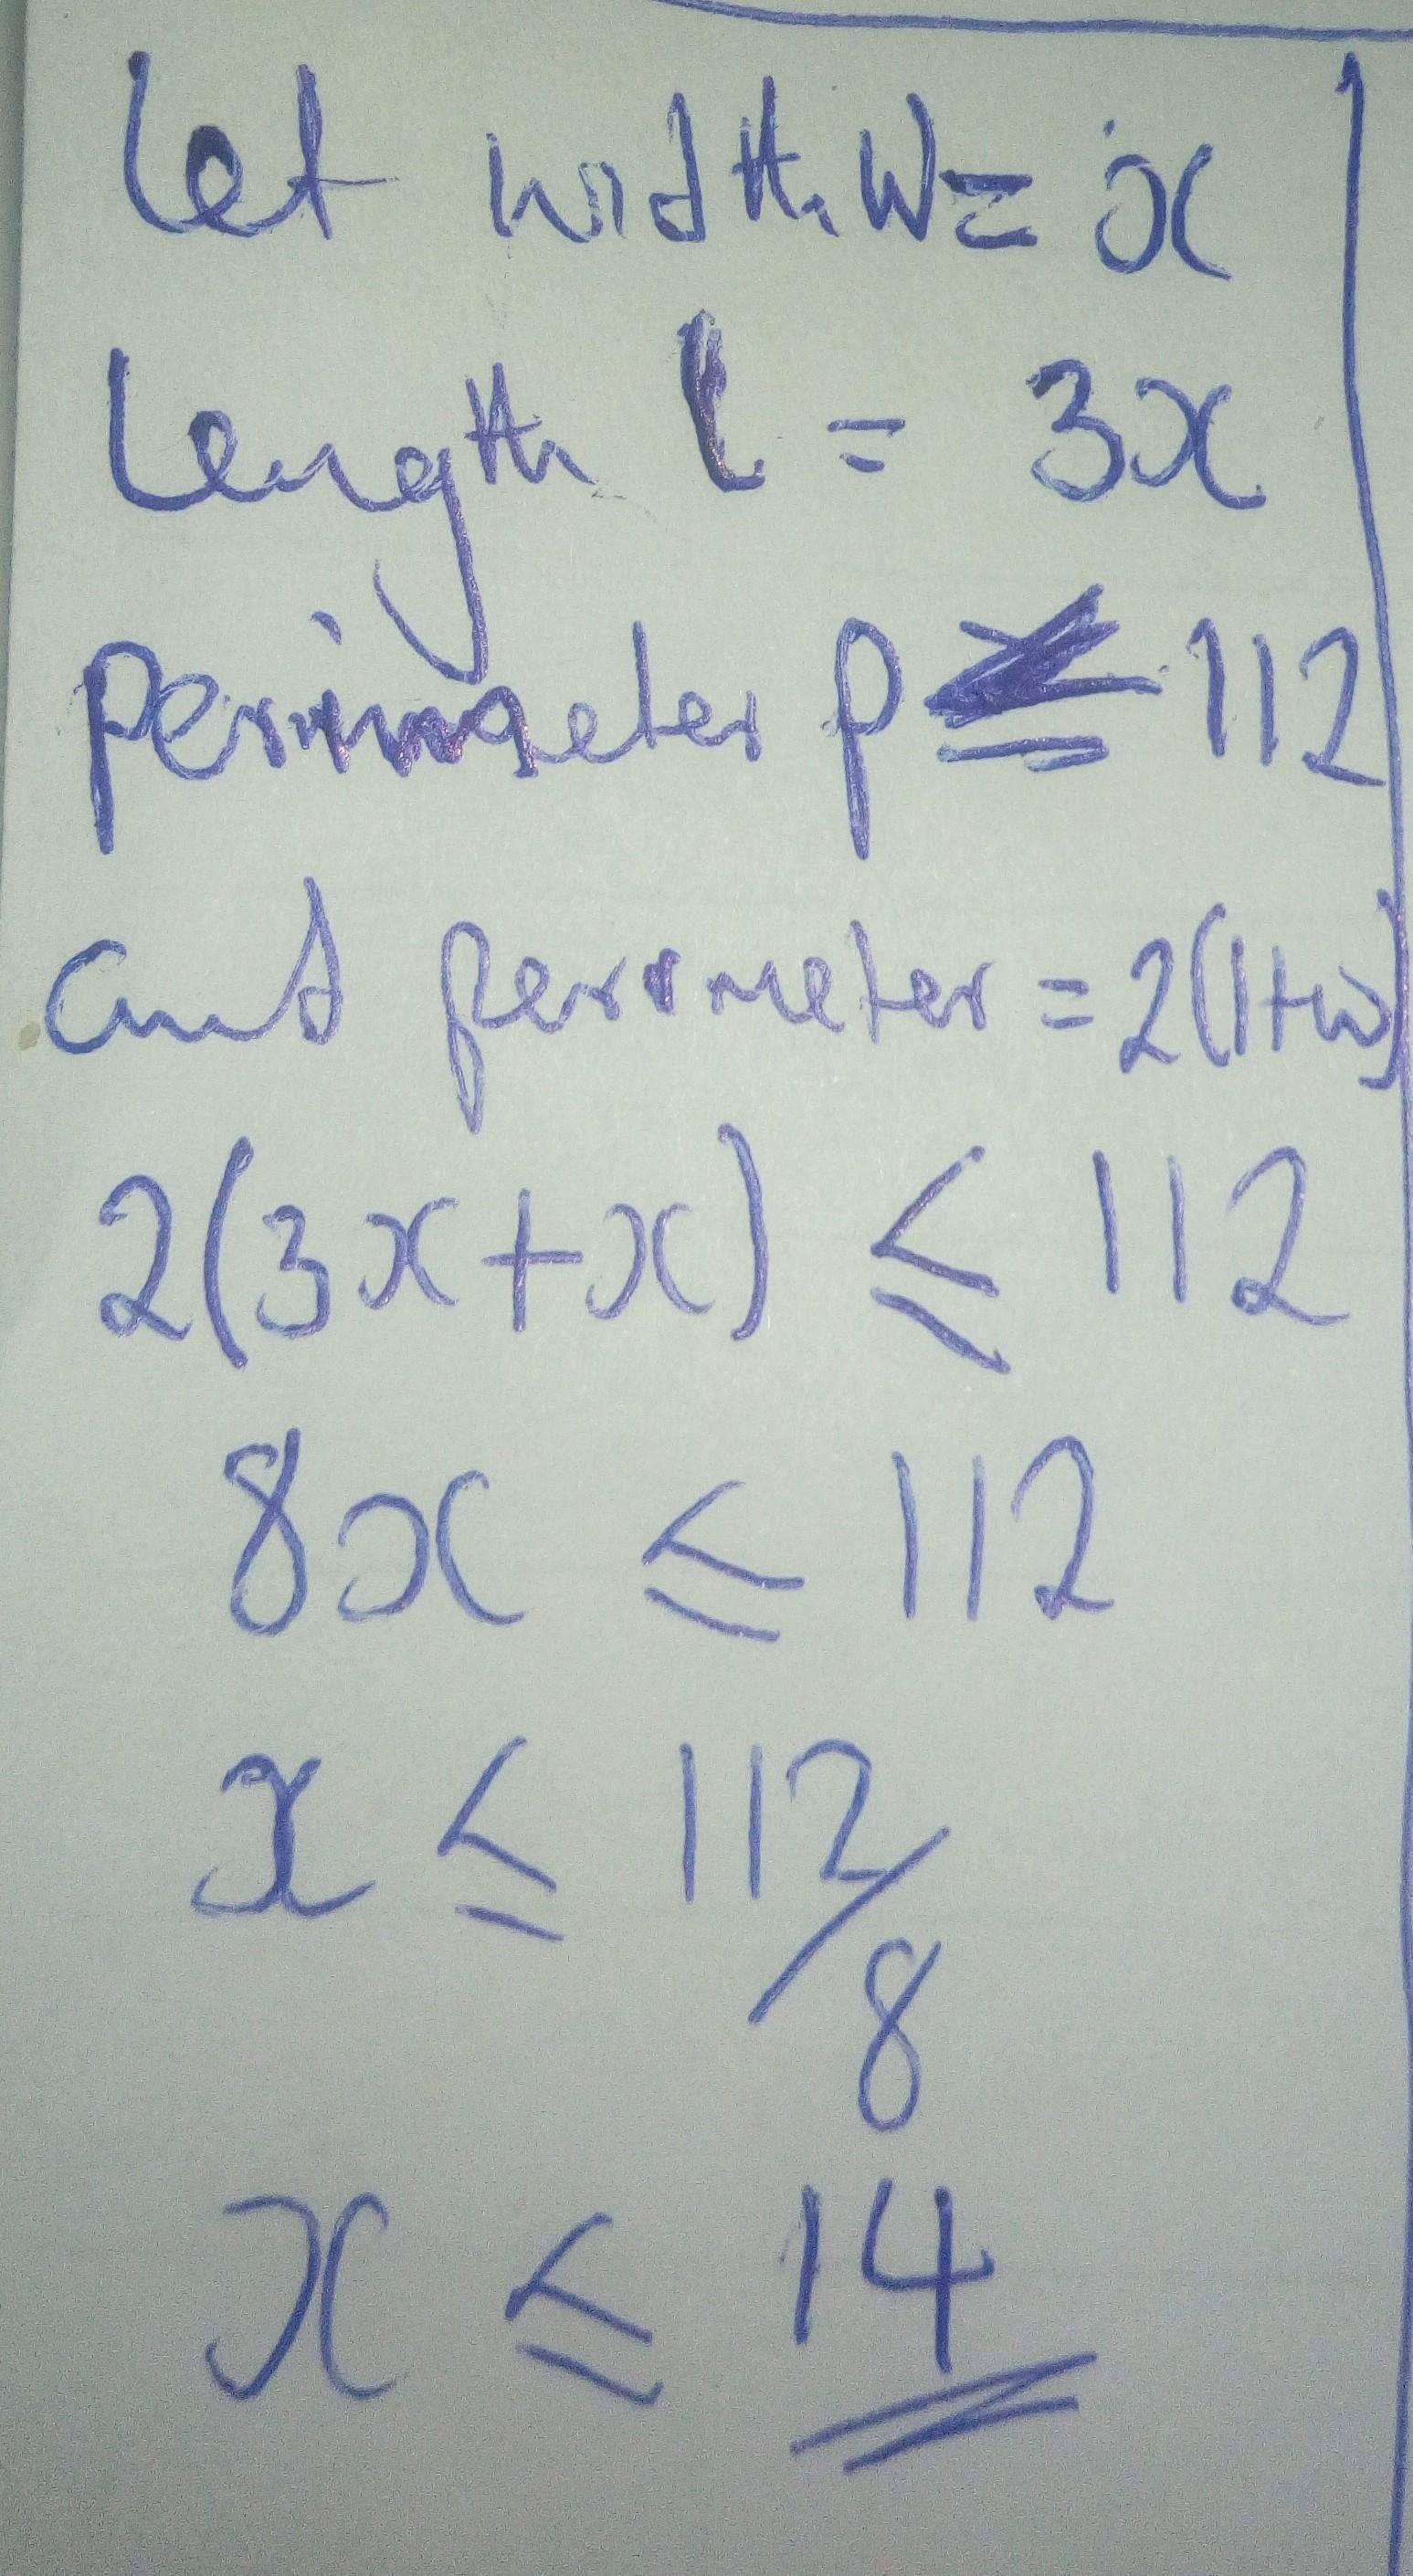 Let width W = x
Length l = 3x
perimeter p ≤ 112
and perimeter = 2(l+w)
2(3x+x) ≤ 112
8x ≤ 112
x ≤ 112/8
x ≤ 14